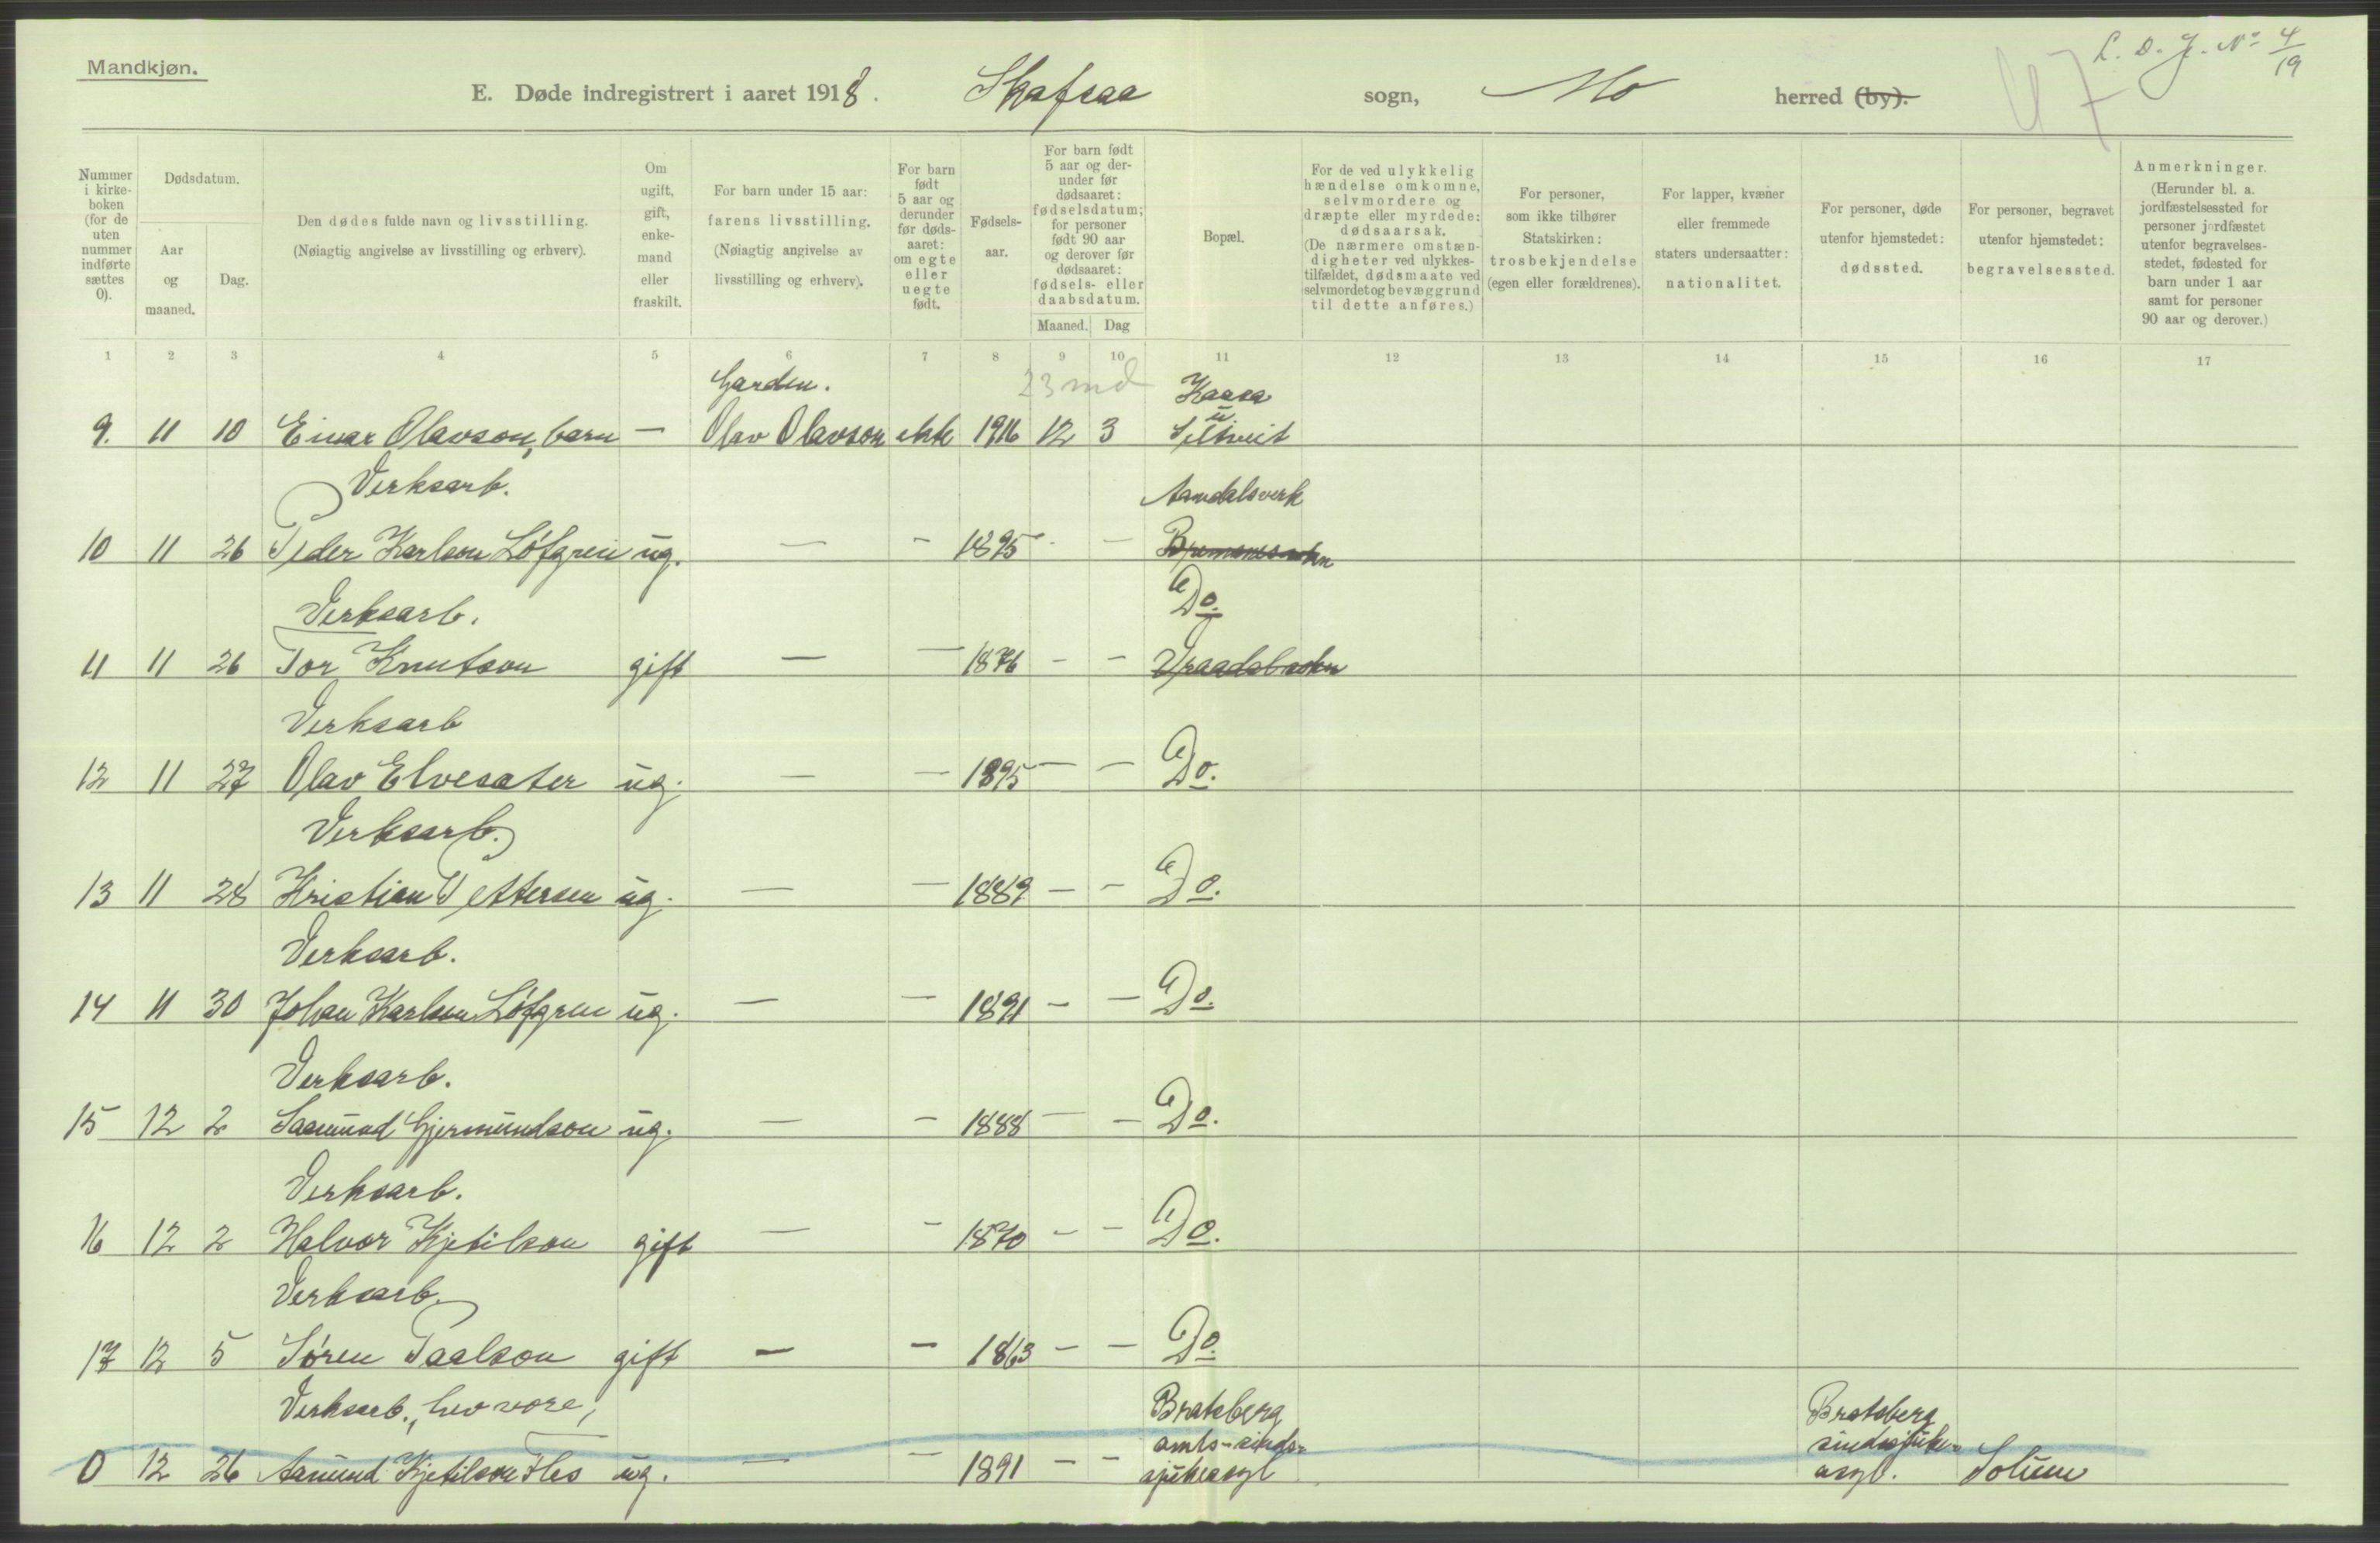 Mandkjøn.
L. D. J. No 4/19
E. Døde indregistrert i aaret 1918. Skafsaa sogn, Mo herred (by).
Nummer i kirke-boken (for de uten nummer indførte sættes 0).
Dødsdatum.
Aar og maaned.
Dag.
Den dødes fulde navn og livsstilling.
(Nøiagtig angivelse av livsstilling og erhverv).
Om ugift, gift, enke-mand eller fraskilt.
For barn under 15 aar:
farens livsstilling.
(Nøiagtig angivelse av livsstilling og erhverv).
For barn født 5 aar og derunder før døds-aaret: om egte eller uegte født.
Fødsels-aar.
For barn født 5 aar og der-under før dødsaaret: fødselsdatum; for personer født 90 aar og derover før dødsaaret: fødsels- eller daabsdatum.
Maaned. Dag
Bopæl.
For de ved ulykkelig hændelse omkomne, selvmordere og dræpte eller myrdede: dødsaarsak.
(De nærmere omstæn-digheter ved ulykkes-tilfældet, dødsmaate ved selvmordet og bevæggrund til dette anføres.)
For personer, som ikke tilhører Statskirken: trosbekjendelse (egen eller forældrenes).
For lapper, kvæner eller fremmede staters undersaatter: nationalitet.
For personer, døde utenfor hjemstedet: dødssted.
For personer, begravet utenfor hjemstedet: begravelsessted.
Anmerkninger.
(Herunder bl. a. jordfæstelsessted for personer jordfæstet utenfor begravelses-stedet, fødested for barn under 1 aar samt for personer 90 aar og derover.)
1 2 3 4 5 6 7 8 9 10 11 12 13 14 15 16 17
Garden. 23 md Kaasa
9. 11 10 Einar Olavson, barn — Olav Olavson ekte 1916 12 3
Verksarb. Aamdalsverk
10 11 26 Peder Karlson Löfgren ug. — - 1895 - -
Verksarb. Do.
11 11 26 Tor Knutson gift — — 1876 - -
Verksarb
12 11 27 Olav Elvesæter ug. — — 1895 — — Do.
Verksarb.
13 11 28 Kristian Pettersen ug. — — 1889 — - Do.
Verksarb.
14 11 30 Johan Karlson Löfgren ug. — — 1891 - — Do.
Verksarb.
15 12 2 Saamund Gjermundson ug. — - 1888 — - Do.
Verksarb.
16 12 2 Halvor Kjetilson gift — - 1870 - - Do.
Verksarb.
17 12 5 Søren Paalson gift — - 1863 - - Do.
Verksarb., hev vore, Bratsberg Bratsberg
amts-sinds- sindssjuke-
0 12 26 Aamund Kjetilson Flos ug. — — 1891 - - sjukeasyl asyl. Solum